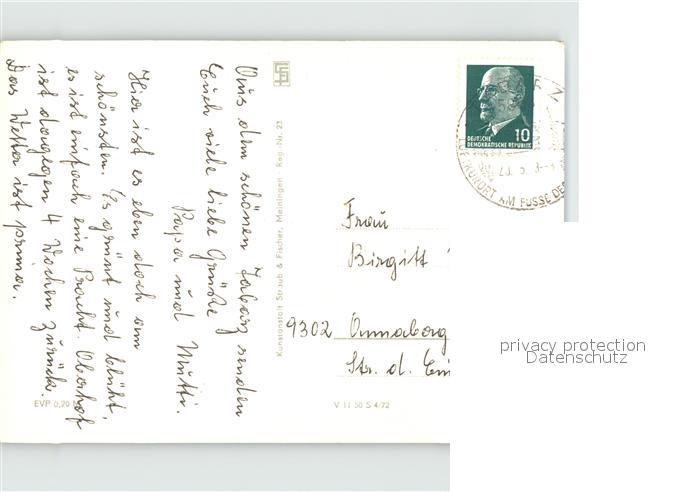 Aus dem schönen Tabarz senden
Euch viele liebe Grüße
Papa und Mutti.
Hier ist es eben doch am
schönsten. Es grünt und blüht,
es ist einfach eine Pracht. Oberhof
ist dagegen 4 Wochen zurück.
Das Wetter ist prima.
EVP 0,20 M
Kunstanstalt Straub & Fischer, Meiningen Reg.-Nr. 23
V 11 50 S 4/72
10
DEUTSCHE
DEMOKRATISCHE REPUBLIK
LUFTKURORT AM FUSSE DE
Frau
Birgitt
9302 Annaberg
Str. d. Ein
privacy protection
Datenschutz